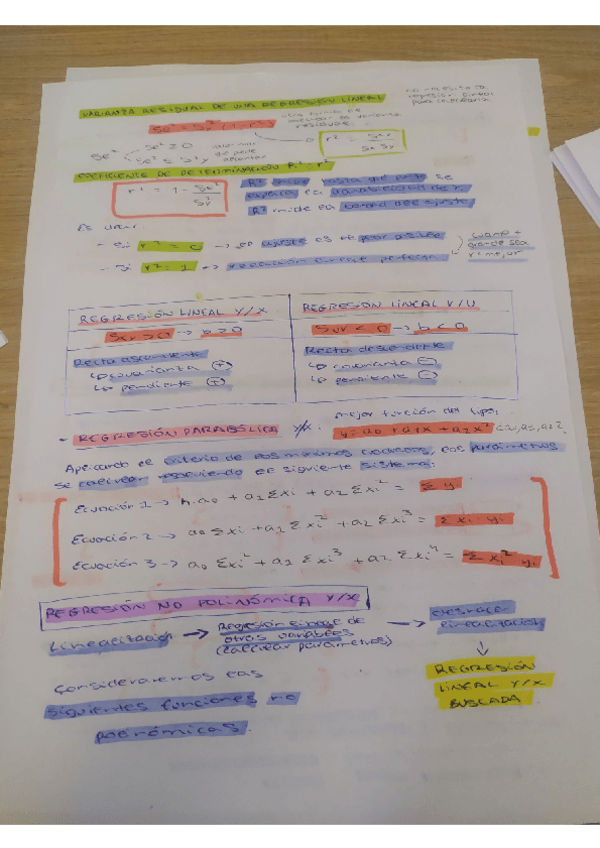 VARIANZA RESIDUAL DE UNA REGRESIÓN LINEAL
Se² = Sy² (1 - r²)
otra forma de
calcular la varianza
residual
Se² ≥ 0
Se² ≤ S²y
r² =
Sx Sy
COEFICIENTE DE DETERMINACIÓN R² = r²
r² = 1 - Se² / Sy²
R² mide la bondad del ajuste
Es decir:
- Si r² = 0 → el ajuste es el peor posible
- Si r² = 1 → regresión lineal perfecta
cuanto +
grande sea
r² mejor
REGRESIÓN LINEAL Y/X
Sxy > 0 → b > 0
Recta ascendente
↳ covarianza (+)
↳ pendiente (+)
REGRESIÓN LINEAL V/U
Suv < 0 → b < 0
Recta descendente
↳ covarianza (-)
↳ pendiente (-)
- REGRESIÓN PARABÓLICA Y/X: mejor función del tipo:
y = a0 + a1x + a2x²
Aplicando el criterio de los mínimos cuadrados, los parámetros
se calculan resolviendo el siguiente sistema:
Ecuación 1 → n·a0 + a1 Σxi + a2 Σxi² = Σ yi
Ecuación 2 → a0 Σxi + a1 Σxi² + a2 Σxi³ = Σ xi yi
Ecuación 3 → a0 Σxi² + a1 Σxi³ + a2 Σxi⁴ = Σ xi² yi
REGRESIÓN NO POLINÓMICA Y/X
Linealización → Regresión lineal de
otras variables
(calcular parámetros)
→ deshacer
linealización
↓
REGRESIÓN
LINEAL Y/X
BUSCADA
Consideraremos las
siguientes funciones no
polinómicas.